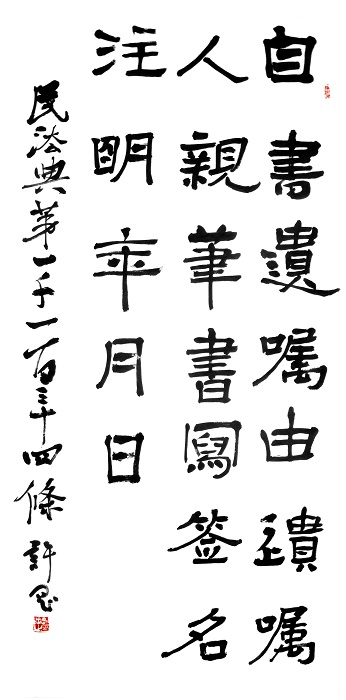 自書遺嘱由遺嘱
人親筆書寫签名
注明年月日
民法典第一千一百三十四條 許